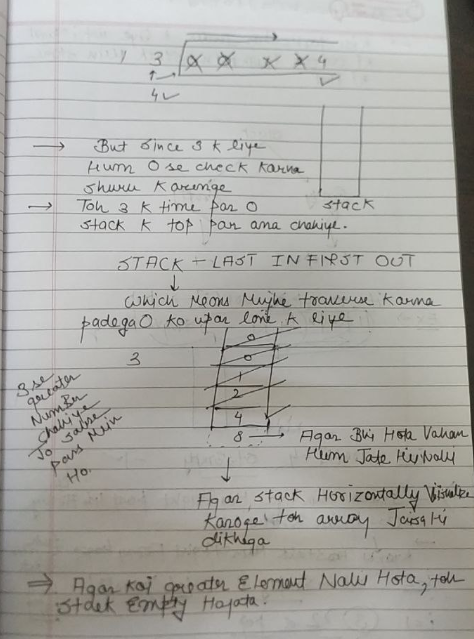 3 X 0 X X 4
4 ✓
→ But since 3 k liye
Hum 0 se check karna
shuru karenge
→ Toh 3 k time par 0
stack k top par ana chahiye.
stack
STACK - LAST IN FIRST OUT
↓
Which Means Mujhe traverse karna
padega 0 ko upar lane k liye
3
0
0
1
2
4
8 → Agar Bhi Hota Vahan
Hum Jate Hi Nahi
3 se
greater
Number
chahiye
Jo sabse
pass Mein
Ho.
↓
Agar stack Horizontally Visualize
Karoge toh array Jaisa Hi
dikhega
⇒ Agar koi greater Element Nahi Hota, toh
stack Empty Hojata.